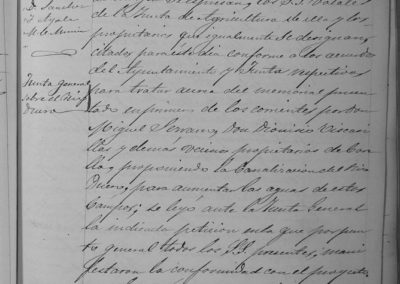 D. Sanchez
F. Ayala
M. de Muñoz
Junta General
sobre el Riego
se expresan, los S.S. Vocales
de la Junta de Agricultura de ella y los
propietarios que igualmente se designan,
citados para este dia conforme a los acuerdos
del Ayuntamiento y Junta respectivas
para tratar acerca del memorial presen
tado en primero de los corrientes por Don
Miguel Serrano, Don Dionisio
y demas vecinos propietarios de
proponiendo la Canalización del Rio
para aumentar las aguas de estos
Campos; se leyó ante la Junta General
la indicada petición en la que por pun
to general todos los S.S. presentes, mani
festaron la conformidad con el proyecto